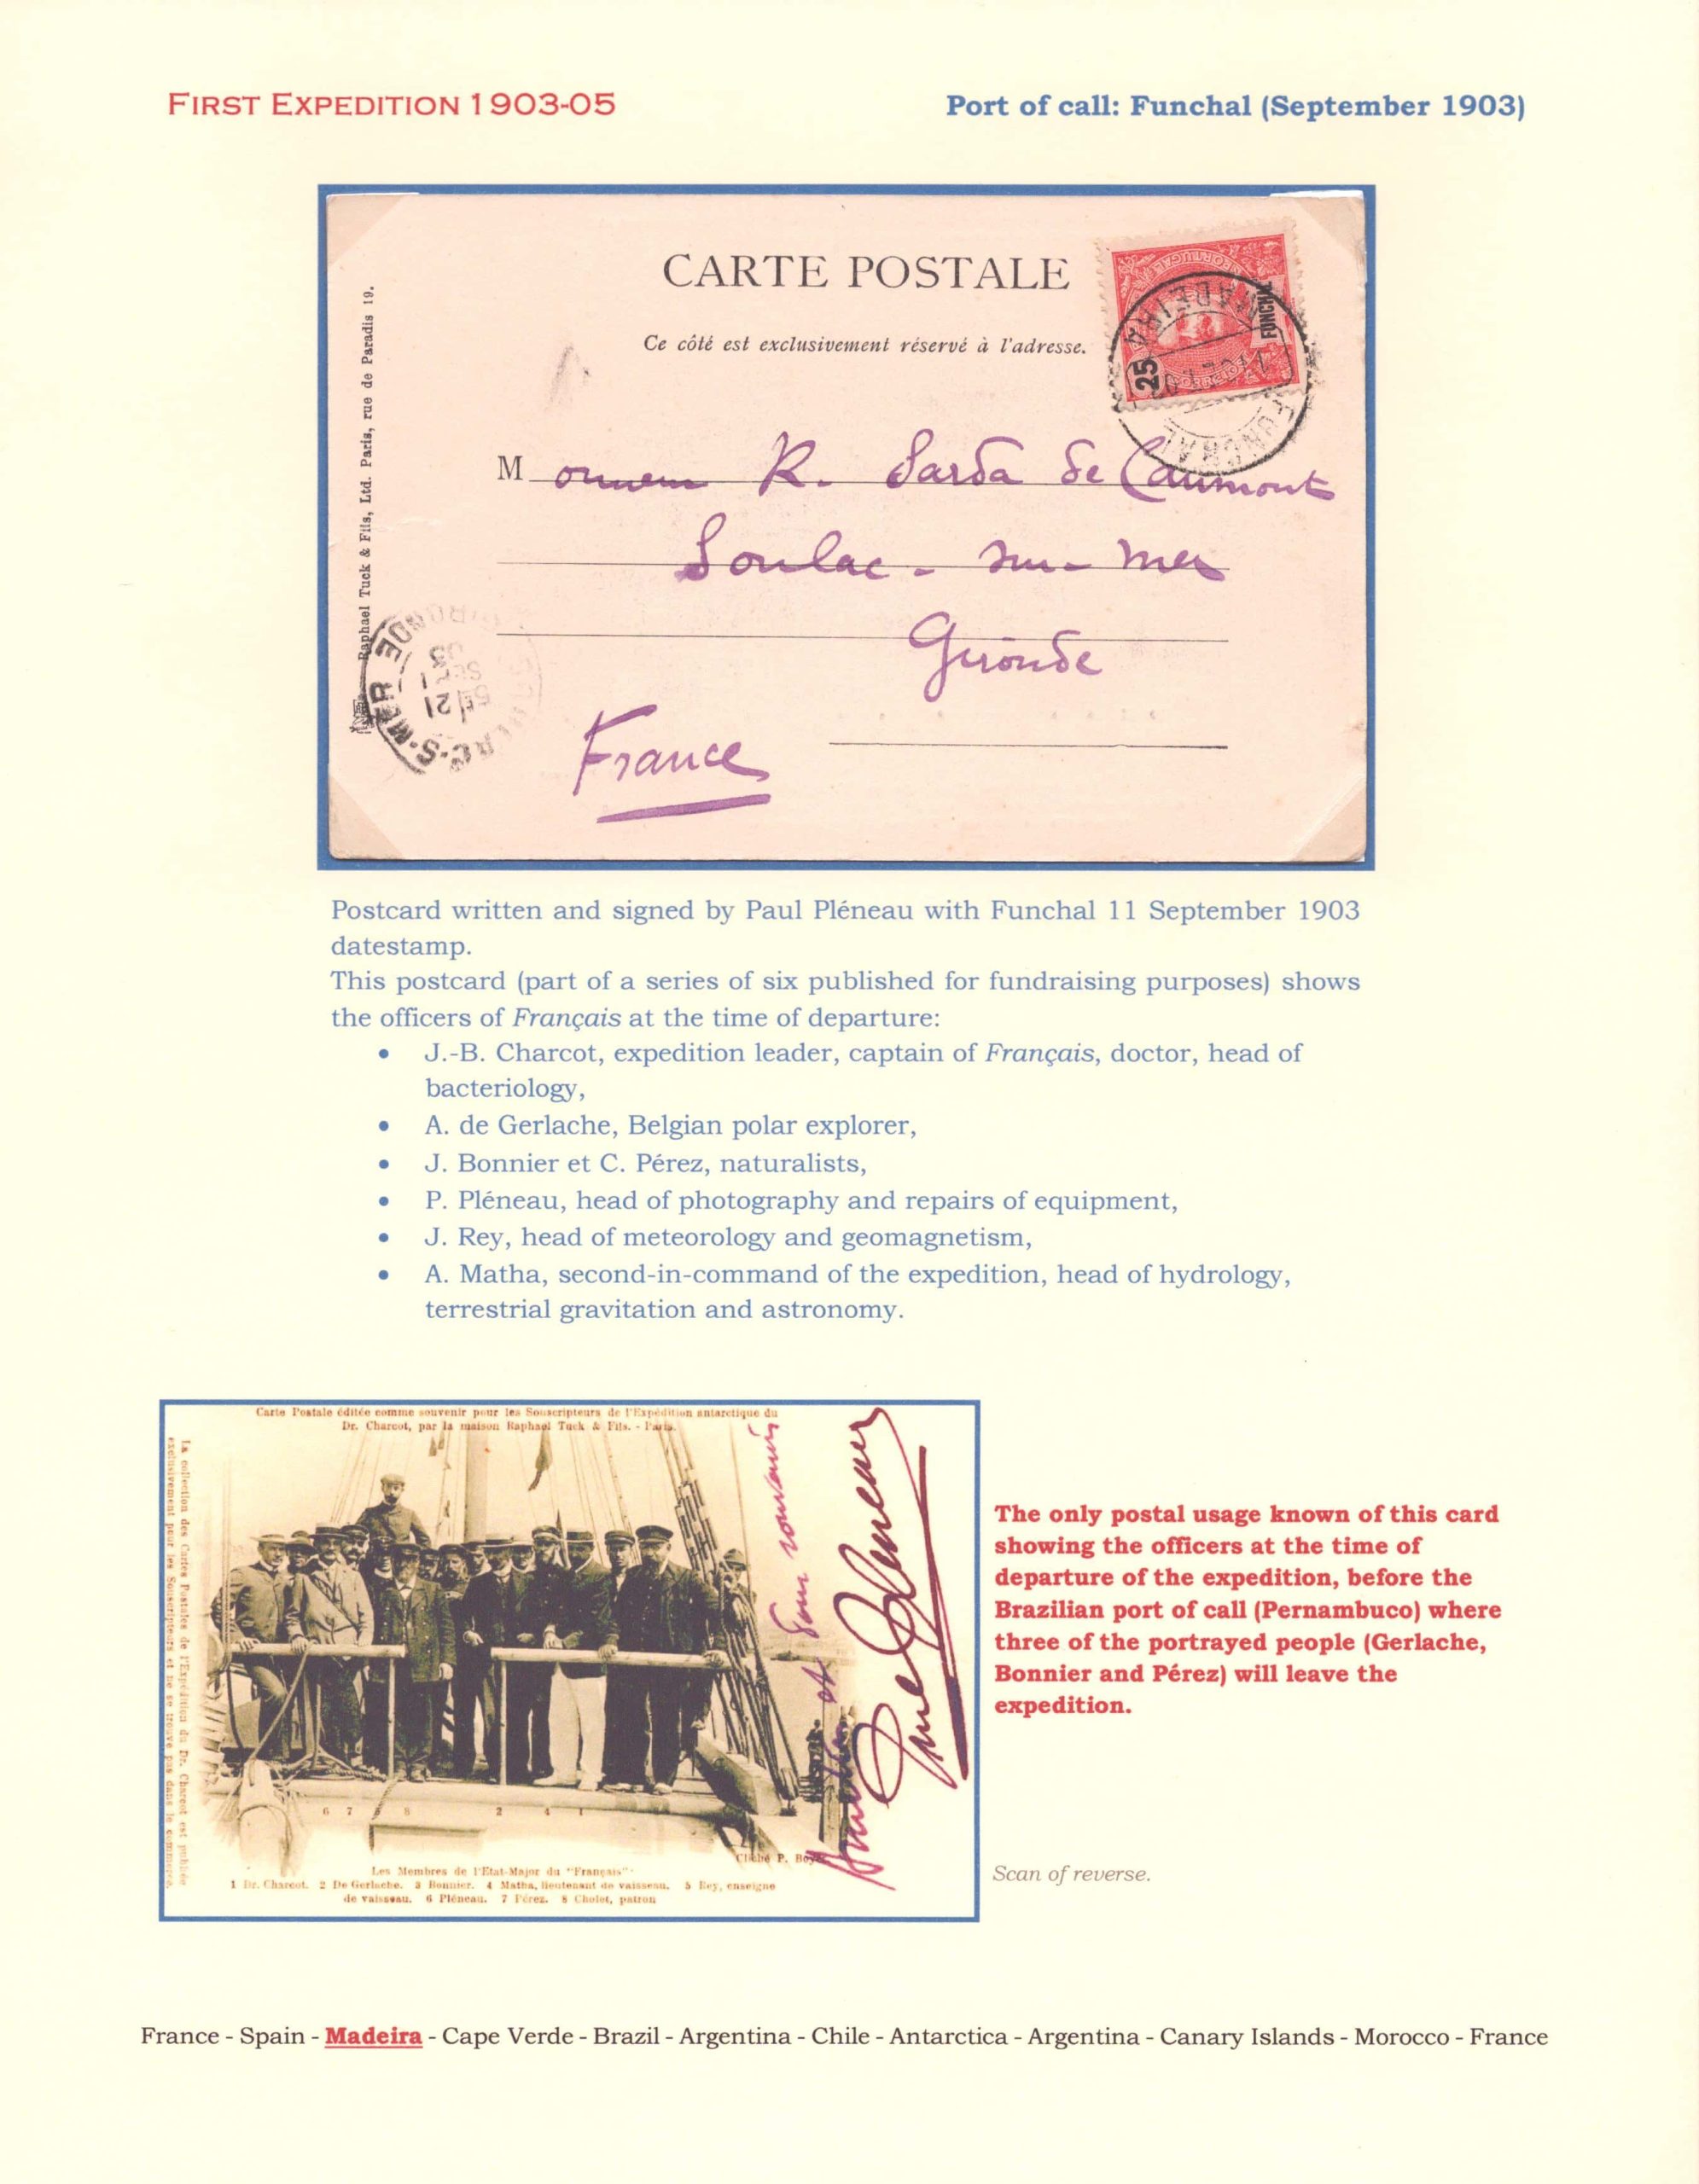 FIRST EXPEDITION 1903-05
Port of call: Funchal (September 1903)
CARTE POSTALE
Ce côté est exclusivement réservé à l'adresse.
Raphael Tuck & Fils, Ltd. Paris, rue de Paradis 19.
PORTUGAL
25
CORREIOS
FUNCHAL
MADEIRA
FUNCHAL
Monsieur R. Sarda de Caumont
Soulac-sur-mer
Gironde
France
GIRONDE
21
SEPT
03
Postcard written and signed by Paul Pléneau with Funchal 11 September 1903
datestamp.
This postcard (part of a series of six published for fundraising purposes) shows
the officers of Français at the time of departure:
• J.-B. Charcot, expedition leader, captain of Français, doctor, head of
bacteriology,
• A. de Gerlache, Belgian polar explorer,
• J. Bonnier et C. Pérez, naturalists,
• P. Pléneau, head of photography and repairs of equipment,
• J. Rey, head of meteorology and geomagnetism,
• A. Matha, second-in-command of the expedition, head of hydrology,
terrestrial gravitation and astronomy.
Carte Postale éditée comme souvenir pour les Souscripteurs de l'Expédition antarctique du
Dr. Charcot, par la maison Raphael Tuck & Fils. - Paris.
La collection des Cartes Postales de l'Expédition du Dr. Charcot est publiée
exclusivement pour les Souscripteurs et ne se trouve pas dans le commerce.
6 7 8 2 4 1
Cliché P. Boyer
Les Membres de l'Etat-Major du "Français"
1 Dr. Charcot. 2 De Gerlache. 3 Bonnier. 4 Matha, lieutenant de vaisseau. 5 Rey, enseigne
de vaisseau. 6 Pléneau. 7 Pérez. 8 Cholet, patron
et bon souvenir
Paul Pléneau
The only postal usage known of this card
showing the officers at the time of
departure of the expedition, before the
Brazilian port of call (Pernambuco) where
three of the portrayed people (Gerlache,
Bonnier and Pérez) will leave the
expedition.
Scan of reverse.
France - Spain - Madeira - Cape Verde - Brazil - Argentina - Chile - Antarctica - Argentina - Canary Islands - Morocco - France